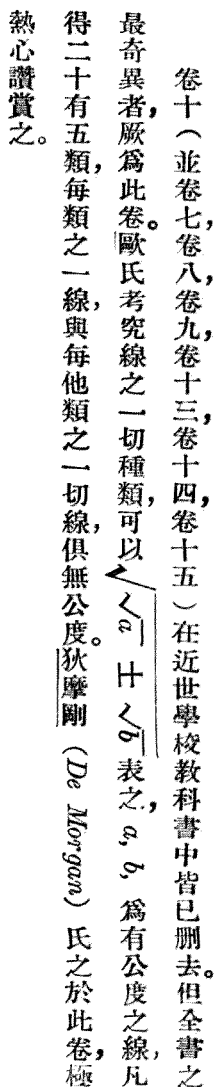 卷十（並卷七，卷八，卷九，卷十三，卷十四，卷十五）在近世學校教科書中皆已刪去。但全書之
最奇異者，厥爲此卷。歐氏考究線之一切種類，可以√(√a ± √b)表之，a, b, 爲有公度之線，凡
得二十有五類，每類之一線，與每他類之一切線，俱無公度。狄摩剛（De Morgan）氏之於此卷，極
熱心讚賞之。